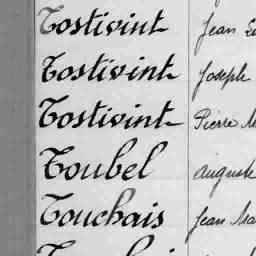 Tostivint Jean
Tostivint Joseph
Tostivint Pierre
Toubel Auguste
Touchais Jean